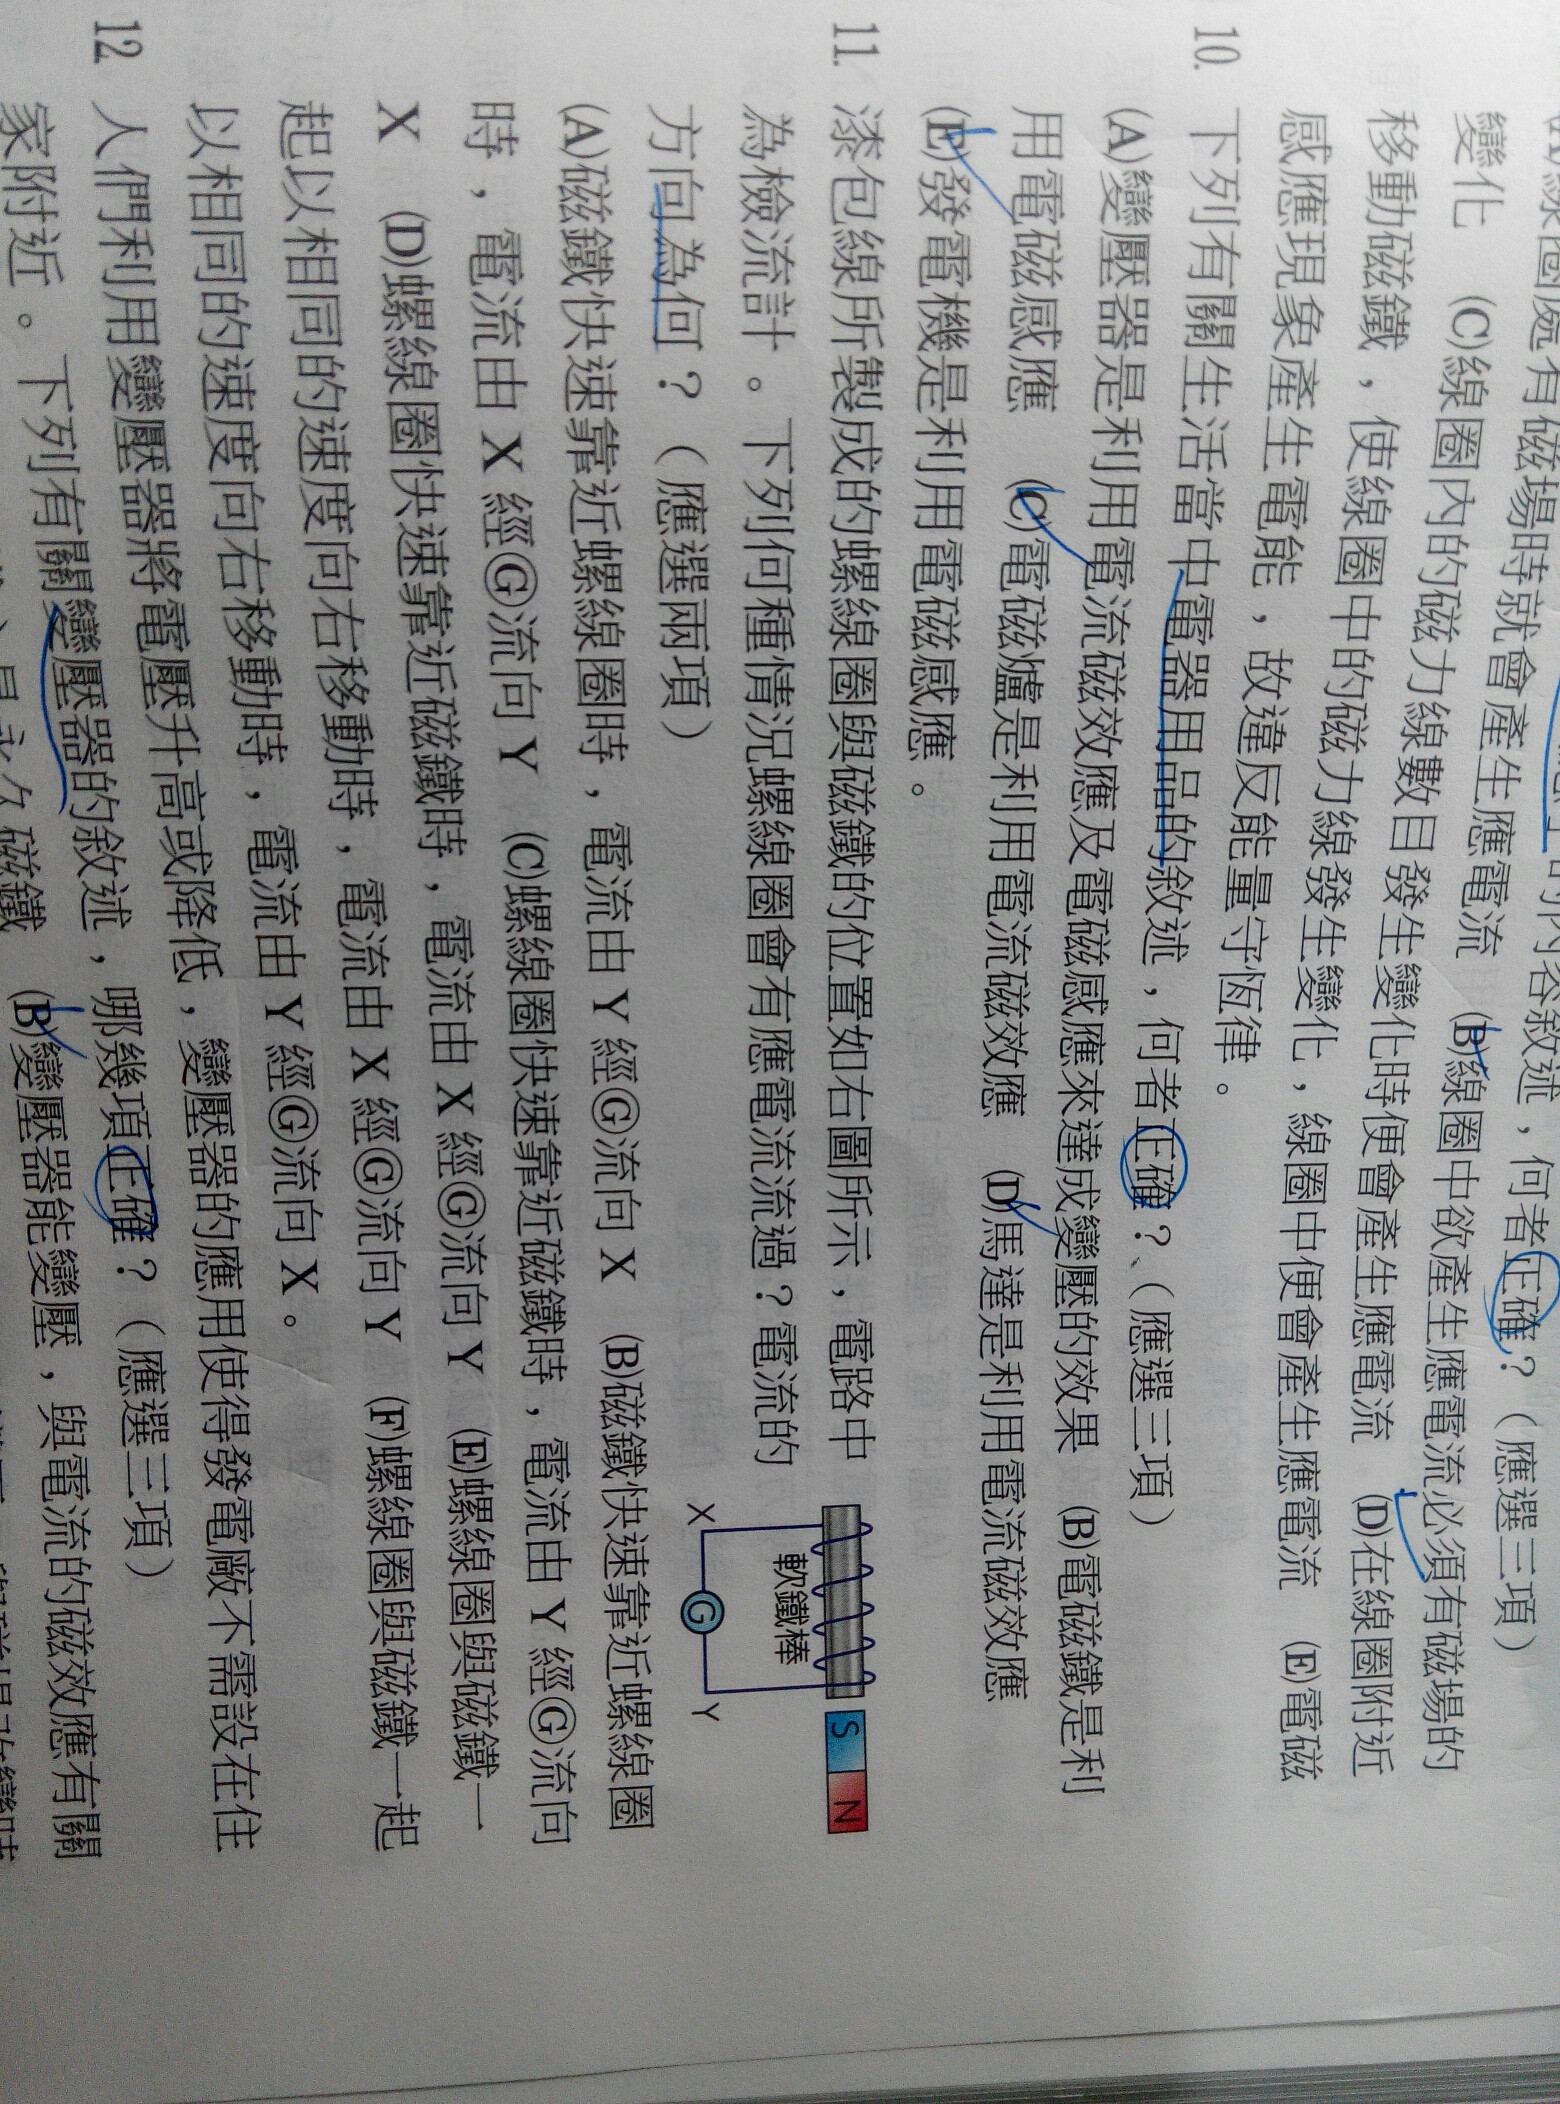 線圈處有磁場時就會產生應電流 (B)線圈中欲產生應電流必須有磁場的
變化 (C)線圈內的磁力線數目發生變化時便會產生應電流 (D)在線圈附近
移動磁鐵，使線圈中的磁力線發生變化，線圈中便會產生應電流 (E)電磁
感應現象產生電能，故違反能量守恆律。
10. 下列有關生活當中電器用品的敘述，何者正確？（應選三項）
(A)變壓器是利用電流磁效應及電磁感應來達成變壓的效果 (B)電磁鐵是利
用電磁感應 (C)電磁爐是利用電流磁效應 (D)馬達是利用電流磁效應
(E)發電機是利用電磁感應。
11. 漆包線所製成的螺線圈與磁鐵的位置如右圖所示，電路中
為檢流計。下列何種情況螺線圈會有應電流流過？電流的
方向為何？（應選兩項）
(A)磁鐵快速靠近螺線圈時，電流由 Y 經Ⓖ流向 X (B)磁鐵快速靠近螺線圈
時，電流由 X 經Ⓖ流向 Y (C)螺線圈快速靠近磁鐵時，電流由 Y 經Ⓖ流向
X (D)螺線圈快速靠近磁鐵時，電流由 X 經Ⓖ流向 Y (E)螺線圈與磁鐵一
起以相同的速度向右移動時，電流由 X 經Ⓖ流向 Y (F)螺線圈與磁鐵一起
以相同的速度向右移動時，電流由 Y 經Ⓖ流向 X。
S N
軟鐵棒
X G Y
12. 人們利用變壓器將電壓升高或降低，變壓器的應用使得發電廠不需設在住
家附近。下列有關變壓器的敘述，哪幾項正確？（應選三項）
(B)變壓器能變壓，與電流的磁效應有關